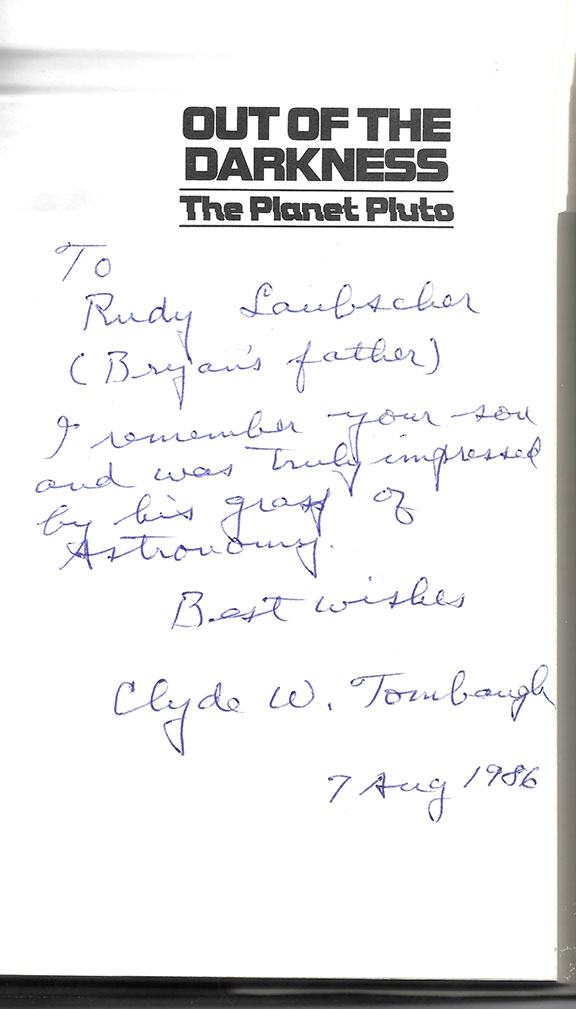 OUT OF THE
DARKNESS
The Planet Pluto
To
Rudy Laubscher
(Bryan's father)
I remember your son
and was truly impressed
by his grasp of
Astronomy.
Best wishes
Clyde W. Tombaugh
7 Aug 1986